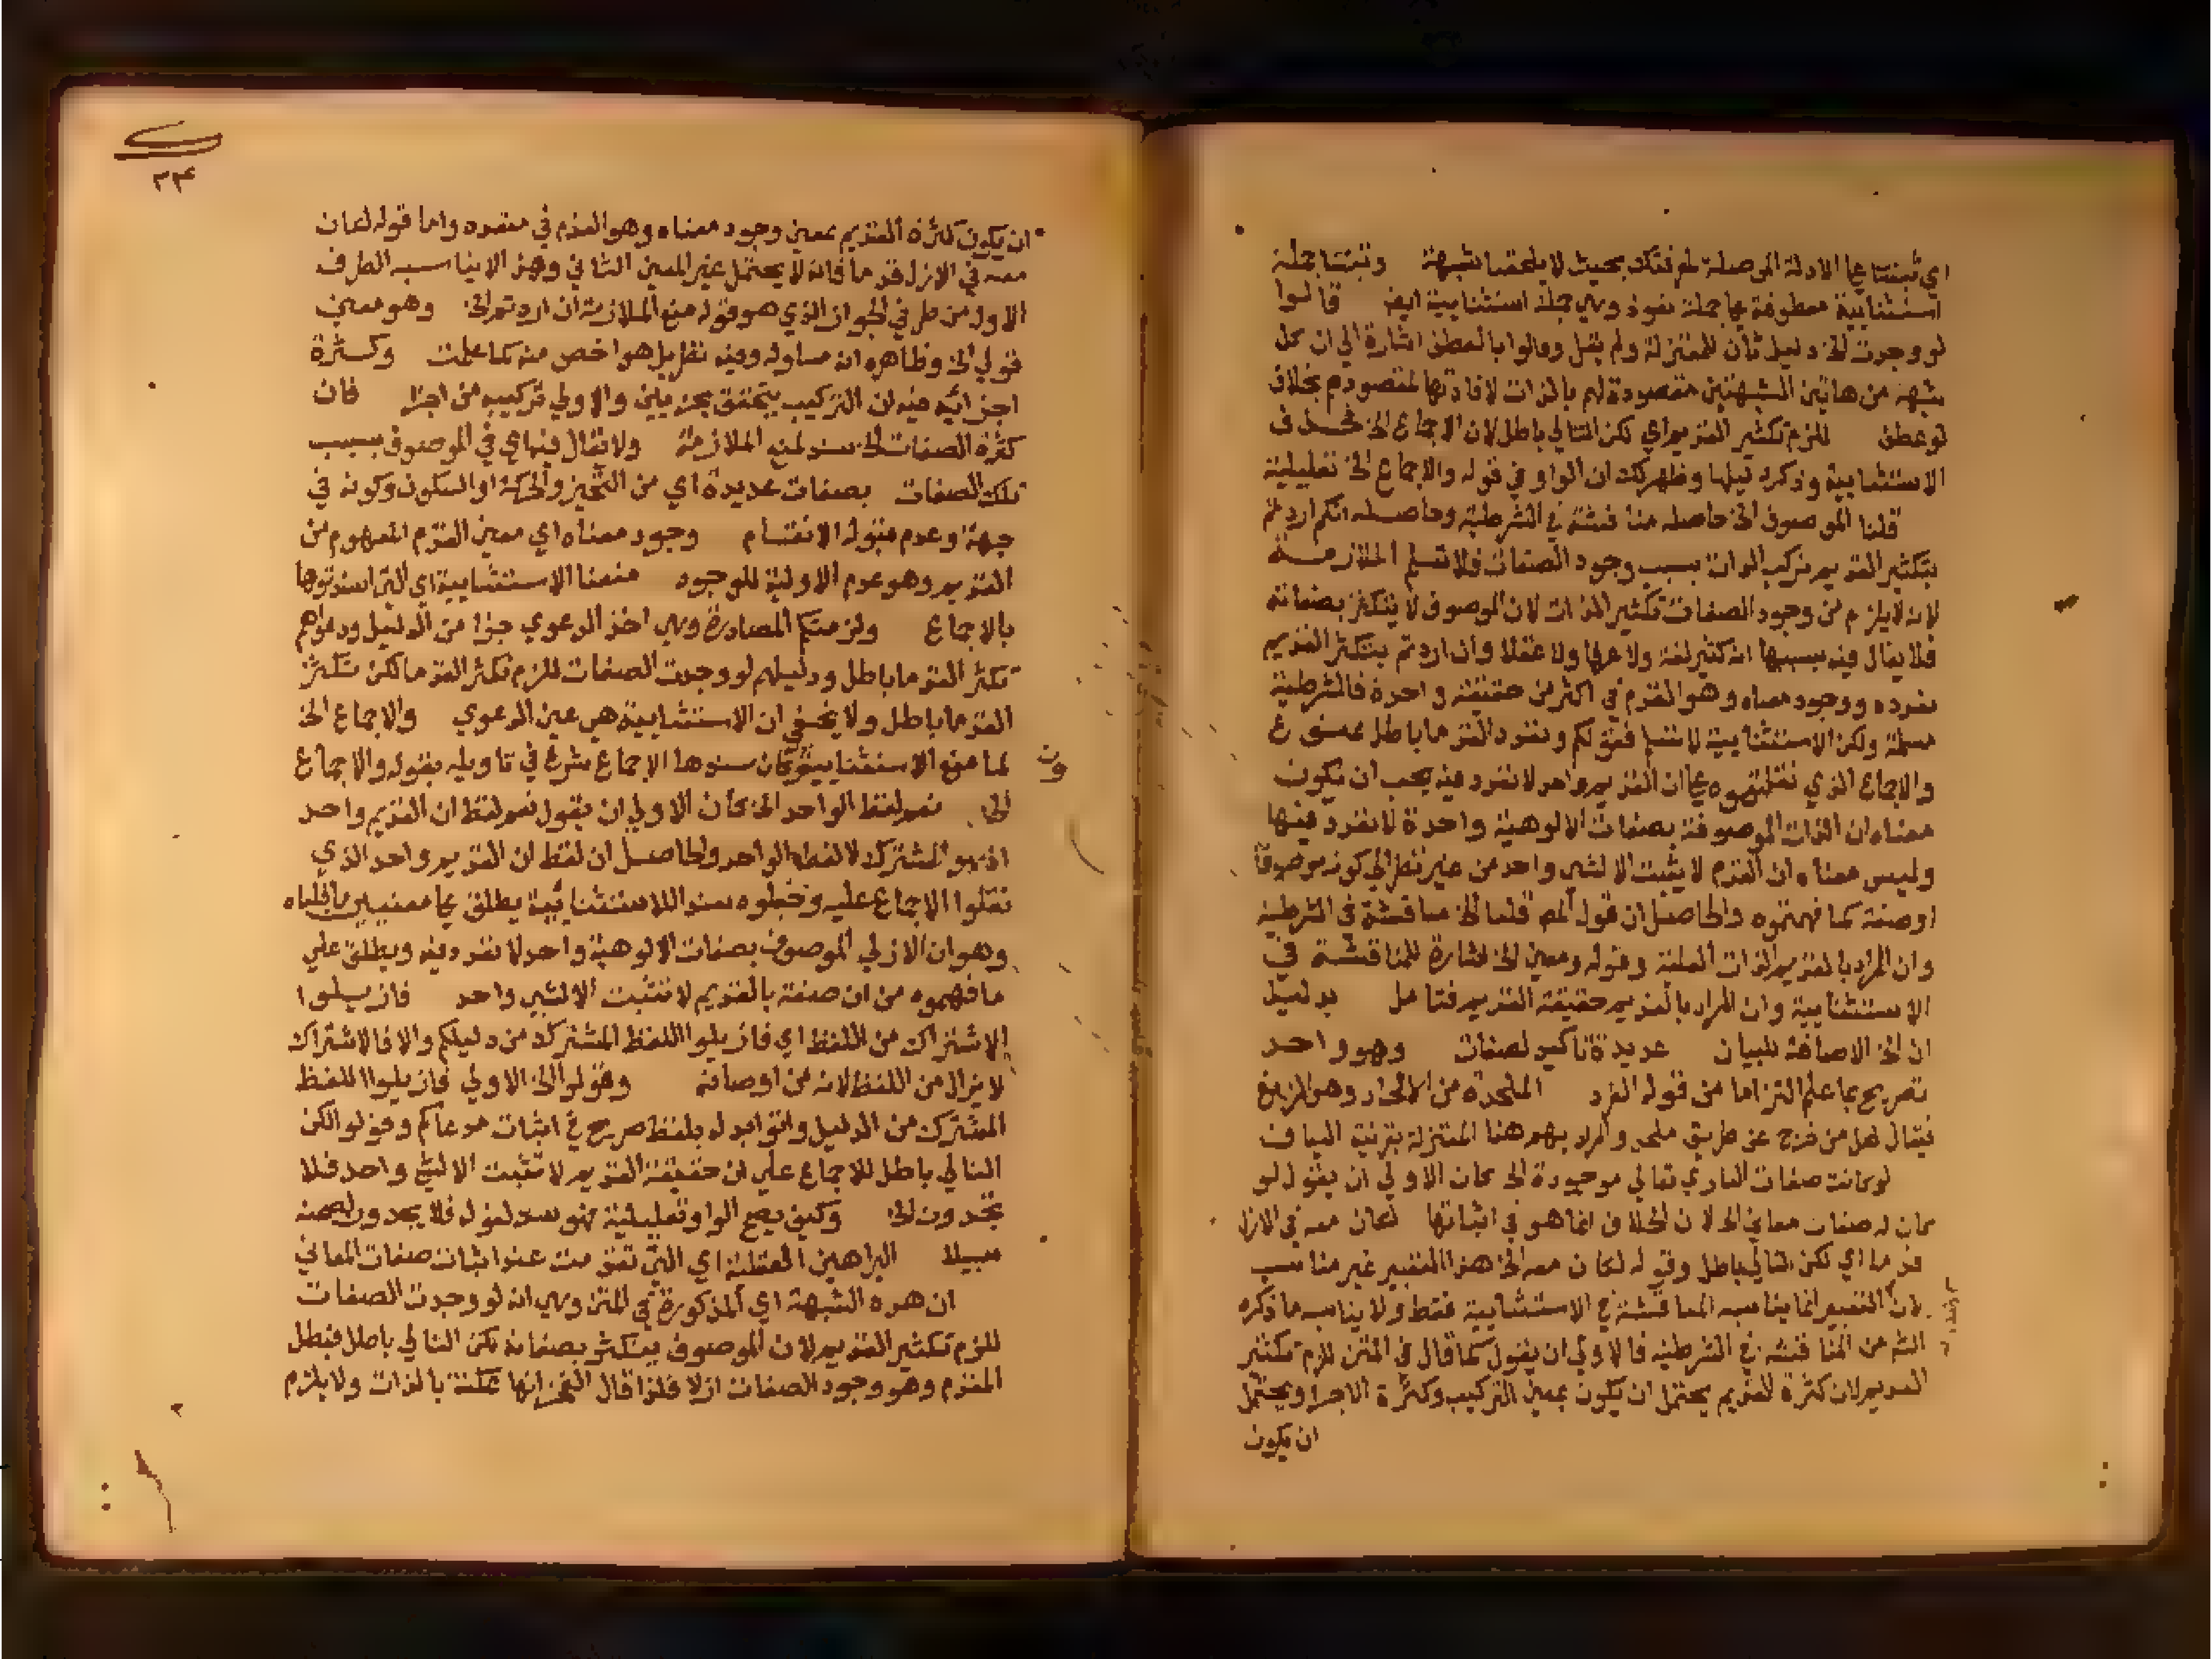 اي ثبتنا علي الادلة الموصلة لمعرفتك بحيث لا يلحقنا شبهة وثبتنا جملة
استئنافية معطوفة علي جملة نعوذ وهي جملة استئنافية ايضا قالوا
لو وجدت الخ دليل ثان للمعتزلة ولم يقل وقالوا بالعطف اشارة الي ان كل
شبهة من هاتين الشبهتين مقصودة لهم بالذات لافادتها لمقصودهم بخلاف
لو عطف للزم تكثير القديم اي لكن التالي باطل لان الاجماع الخ فحذف
الاستثنائية وذكر دليلها وظهر لك ان الواو في قوله والاجماع الخ تعليلية
قلنا الموصوف الخ حاصله مناقشة في الشرطية وحاصله انكم اردتم
بتكثير القديم تركب الذات بسبب وجود الصفات فلا نسلم الملازمة
لانه لا يلزم من وجود الصفات تكثير الذات لان الموصوف لا يتكثر بصفاته
فلا يقال فيه بسببها انه كثير لغة ولا عرفا ولا عقلا وان اردتم بتكثر القديم
تعدده ووجود معناه وهو القدم في اكثر من حقيقة واحدة فالشرطية
مسلمة ولكن الاستثنائية لا نسلمها فقولكم وتعدد القدما باطل ممنوع
والاجماع الذي نقلتموه علي ان القديم واحد لا تعدد فيه يجب ان يكون
معناه ان الذات الموصوفة بصفات الالوهية واحدة لا تعدد فيها
وليس معناه ان القدم لا يثبت الا لشي واحد من غير نظر الي كونه موصوفا
او صفة كما فهمتموه والحاصل ان قول المص قلنا الخ مناقشة في الشرطية
وان المراد بالقديم الذات العلية وقوله ومعني الخ اشارة للمناقشة في
الاستثنائية وان المراد بالقديم حقيقة القديم فتامل بدليل
ان الخ الاضافة للبيان عديدة تاكيد لصفات وهو واحد
تصريح بما علم التزاما من قوله الفرد الملحدة من الالحاد وهو الزيغ
فيقال لكل من خرج عن طريق ملحد والمراد بهم هنا المعتزلة بقرينة السياق
لو كانت صفات الباري تعالي موجودة الخ كان الاولي ان يقول لو
كان له صفات معاني الخ لان الخلاف انما هو في اثباتها لكان معه في الازل
قدما اي لكن التالي باطل وقوله لكان معه الخ هذا التعبير غير مناسب
لان التعبير انما يناسبه المناقشة في الاستثنائية فقط ولا يناسب ما ذكره
الش من المناقشة في الشرطية فالاولي ان يقول كما قال في المتن للزم تكثير
القديم لان كثرة القديم يحتمل ان يكون بمعني التركيب وكثرة الاجزا ويحتمل
ان يكون
٢٣
ان يكون كثرة القديم بمعني وجود معناه وهو القدم في متعدد واما قوله لكان
معه في الازل قدما فانه لا يحتمل غير المعني الثاني وهذا لا يناسب الطرف
الاول من طرفي الجواب الذي هو قوله منع الملازمة ان اردتم الخ وهو معني
قولي الخ وظاهره انه مساوله وفيه نظر بل هو اخص منه كما علمت وكثرة
اجزائه فيه ان التركيب يتحقق بجزيين والاولي تركيبه من اجزا فان
كثرة الصفات الخ سند لمنع الملازمة ولا يقال فيها اي في الموصوف بسبب
تلك الصفات بصفات عديدة اي من التحيز والحركة او السكون وكونه في
جهة وعدم قبوله الانقسام وجود معناه اي معني القدم المفهوم من
القديم وهو عدم الاولية للوجود منعنا الاستثنائية اي التي اسندتموها
بالاجماع ولزمتكم المصادرة وهي اخذ الدعوي جزا من الدليل ودعواهم
تكثر القدما باطل ودليلهم لو وجدت الصفات للزم تكثر القدما لكن تكثر
القدما باطل ولا يخفي ان الاستثنائية هي عين الدعوي والاجماع الخ
لما منع الاستثنائية وكان سندها الاجماع شرع في تاويله بقوله والاجماع
الخ نعم لفظ الواحد الخ كان الاولي ان يقول نعم لفظ ان القديم واحد
اذ هو المشترك لا لفظ الواحد والحاصل ان لفظ ان القديم واحد الذي
نقلوا الاجماع عليه وجعلوه سندا للاستثنائية يطلق علي معنيين ما قلناه
وهو ان الازلي الموصوف بصفات الالوهية واحد لا تعدد فيه ويطلق علي
ما فهموه من ان صفته بالقديم لا تثبت الا لشي واحد فازيلوا
الاشتراك من اللفظ اي فازيلوا اللفظ المشترك من دليلكم والا فالاشتراك
لا يزال من اللفظ لانه من اوصافه وقولوا الخ الاولي فازيلوا اللفظ
المشترك من الدليل واتوا بدله بلفظ صريح في اثبات مدعاكم وقولوا لكن
التالي باطل للاجماع علي ان حقيقة القديم لا تثبت الا لشي واحد فلا
تجدون الخ وكيف يصح الواو تعليلية فهو سند لقوله فلا يجدون لصحته
سبيلا البراهين العقلية اي التي تقدمت عند اثبات صفات المعاني
ان هذه الشبهة اي المذكورة في المتن وهي انه لو وجدت الصفات
للزم تكثير القديم لان الموصوف يتكثر بصفاته لكن التالي باطل فبطل
المقدم وهو وجود الصفات ازلا فلذا قال الفخر انها ممكنة بالذات ولا يلزم